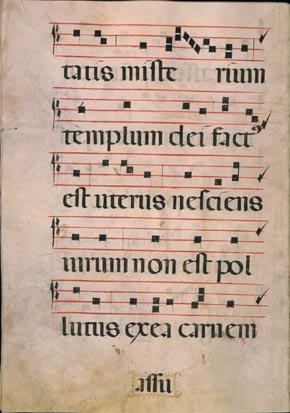 tatis miste rium
templum dei fact⁹
est uterus nesciens
uirum non est pol
lutus ex ea carnem
assu